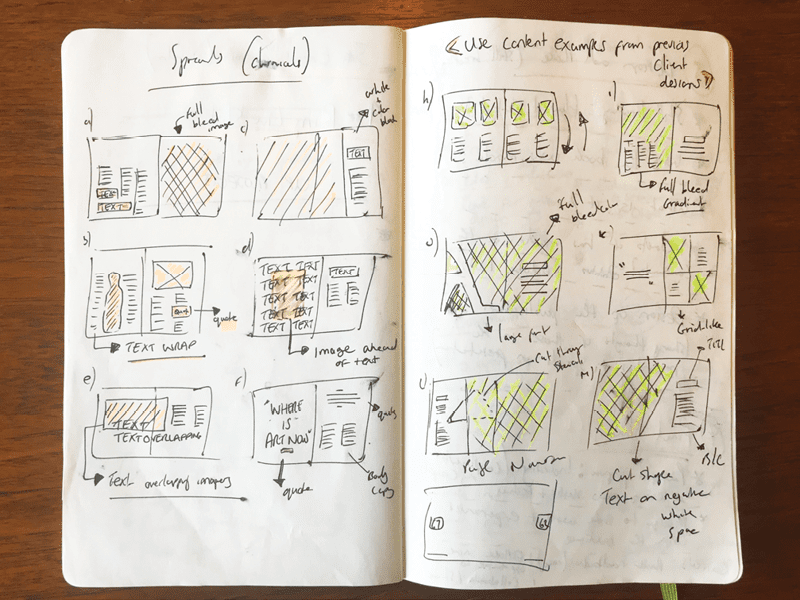 Spreads (chemicals)
a)
Full
bleed
image
c)
white
&
color
block
TEXT
TEXT
TEXT
b)
d)
TEXT TEXT
TEXT TEXT
TEXT TEXT
TEXT TEXT
TEXT TEXT
TEXT
quote
TEXT WRAP
Image ahead
of text
e)
TEXT
TEXT OVERLAPPING
Text overlapping images
f)
"WHERE
IS
ART NOW"
quote
quote
Body
Copy
Use content examples from previous
client
designs
h)
i)
Full bleed
Gradient
J)
Full
bleed color
large font
k)
"
Grid like
L)
Cut through
Page Number
M)
TITL
Cut shape
Text on negative
white
space
67
68